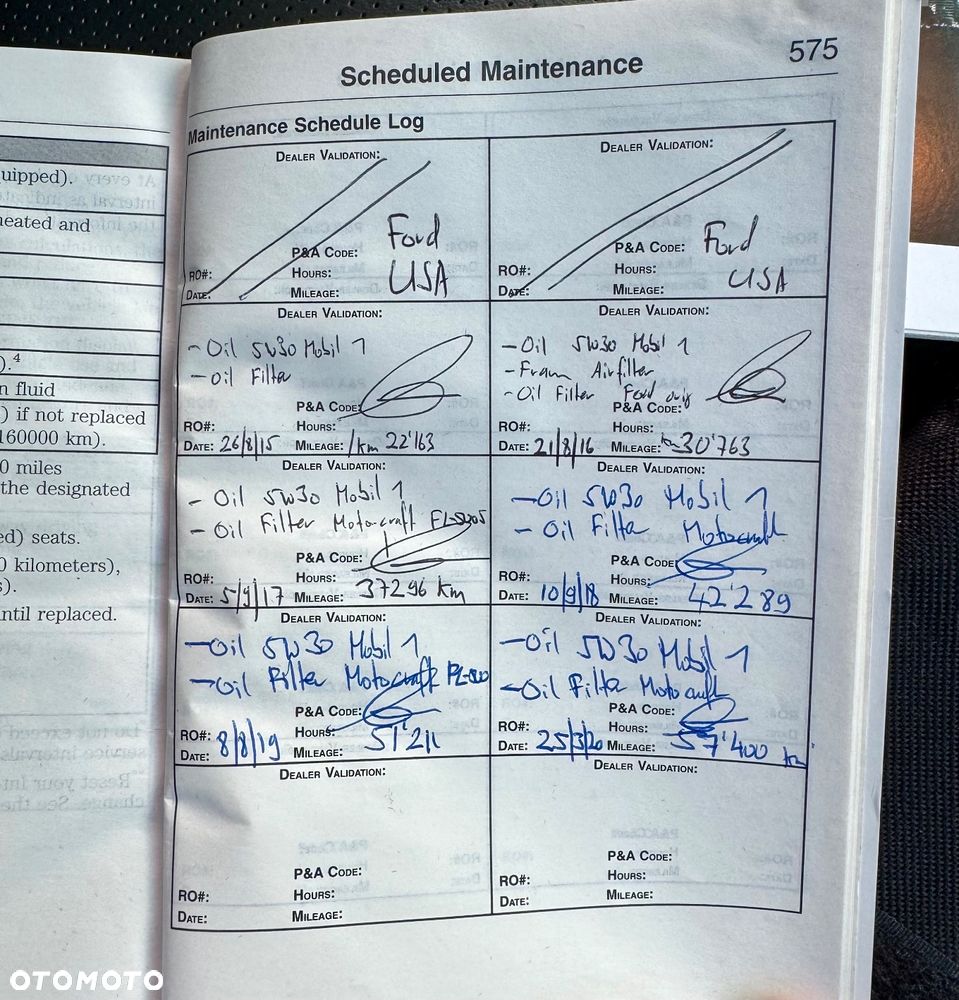 575
Scheduled Maintenance
Maintenance Schedule Log
DEALER VALIDATION:
Ford
P&A CODE:
RO#:
HOURS:
USA
DATE:
MILEAGE:
DEALER VALIDATION:
Ford
P&A CODE:
RO#:
HOURS:
USA
DATE:
MILEAGE:
DEALER VALIDATION:
- Oil 5W30 Mobil 1
- Oil Filter
P&A CODE:
RO#:
HOURS:
DATE: 26/8/15 MILEAGE: /km 22'163
DEALER VALIDATION:
- Oil 5W30 Mobil 1
- Fram Airfilter
- Oil Filter Ford orig
P&A CODE:
RO#:
HOURS:
DATE: 21/8/16 MILEAGE: km 30'763
DEALER VALIDATION:
- Oil 5W30 Mobil 1
- Oil Filter Motorcraft
P&A CODE:
RO#:
HOURS:
DATE: 5/9/17 MILEAGE: 37296 km
DEALER VALIDATION:
- Oil 5W30 Mobil 1
- Oil Filter Motorcraft
P&A CODE:
RO#:
HOURS:
DATE: 10/9/18 MILEAGE: 42'289
DEALER VALIDATION:
- Oil 5W30 Mobil 1
- Oil Filter Motorcraft
P&A CODE:
RO#:
HOURS:
DATE: 8/8/19 MILEAGE: 51'211
DEALER VALIDATION:
- Oil 5W30 Mobil 1
- Oil Filter Motorcraft
P&A CODE:
RO#:
HOURS:
DATE: 25/3/20 MILEAGE: 57'400 km
DEALER VALIDATION:
P&A CODE:
RO#:
HOURS:
DATE:
MILEAGE:
DEALER VALIDATION:
P&A CODE:
RO#:
HOURS:
DATE:
MILEAGE:
uipped).
eated and
).4
n fluid
) if not replaced
160000 km).
0 miles
the designated
ed) seats.
0 kilometers),
s).
ntil replaced.
OTOMOTO